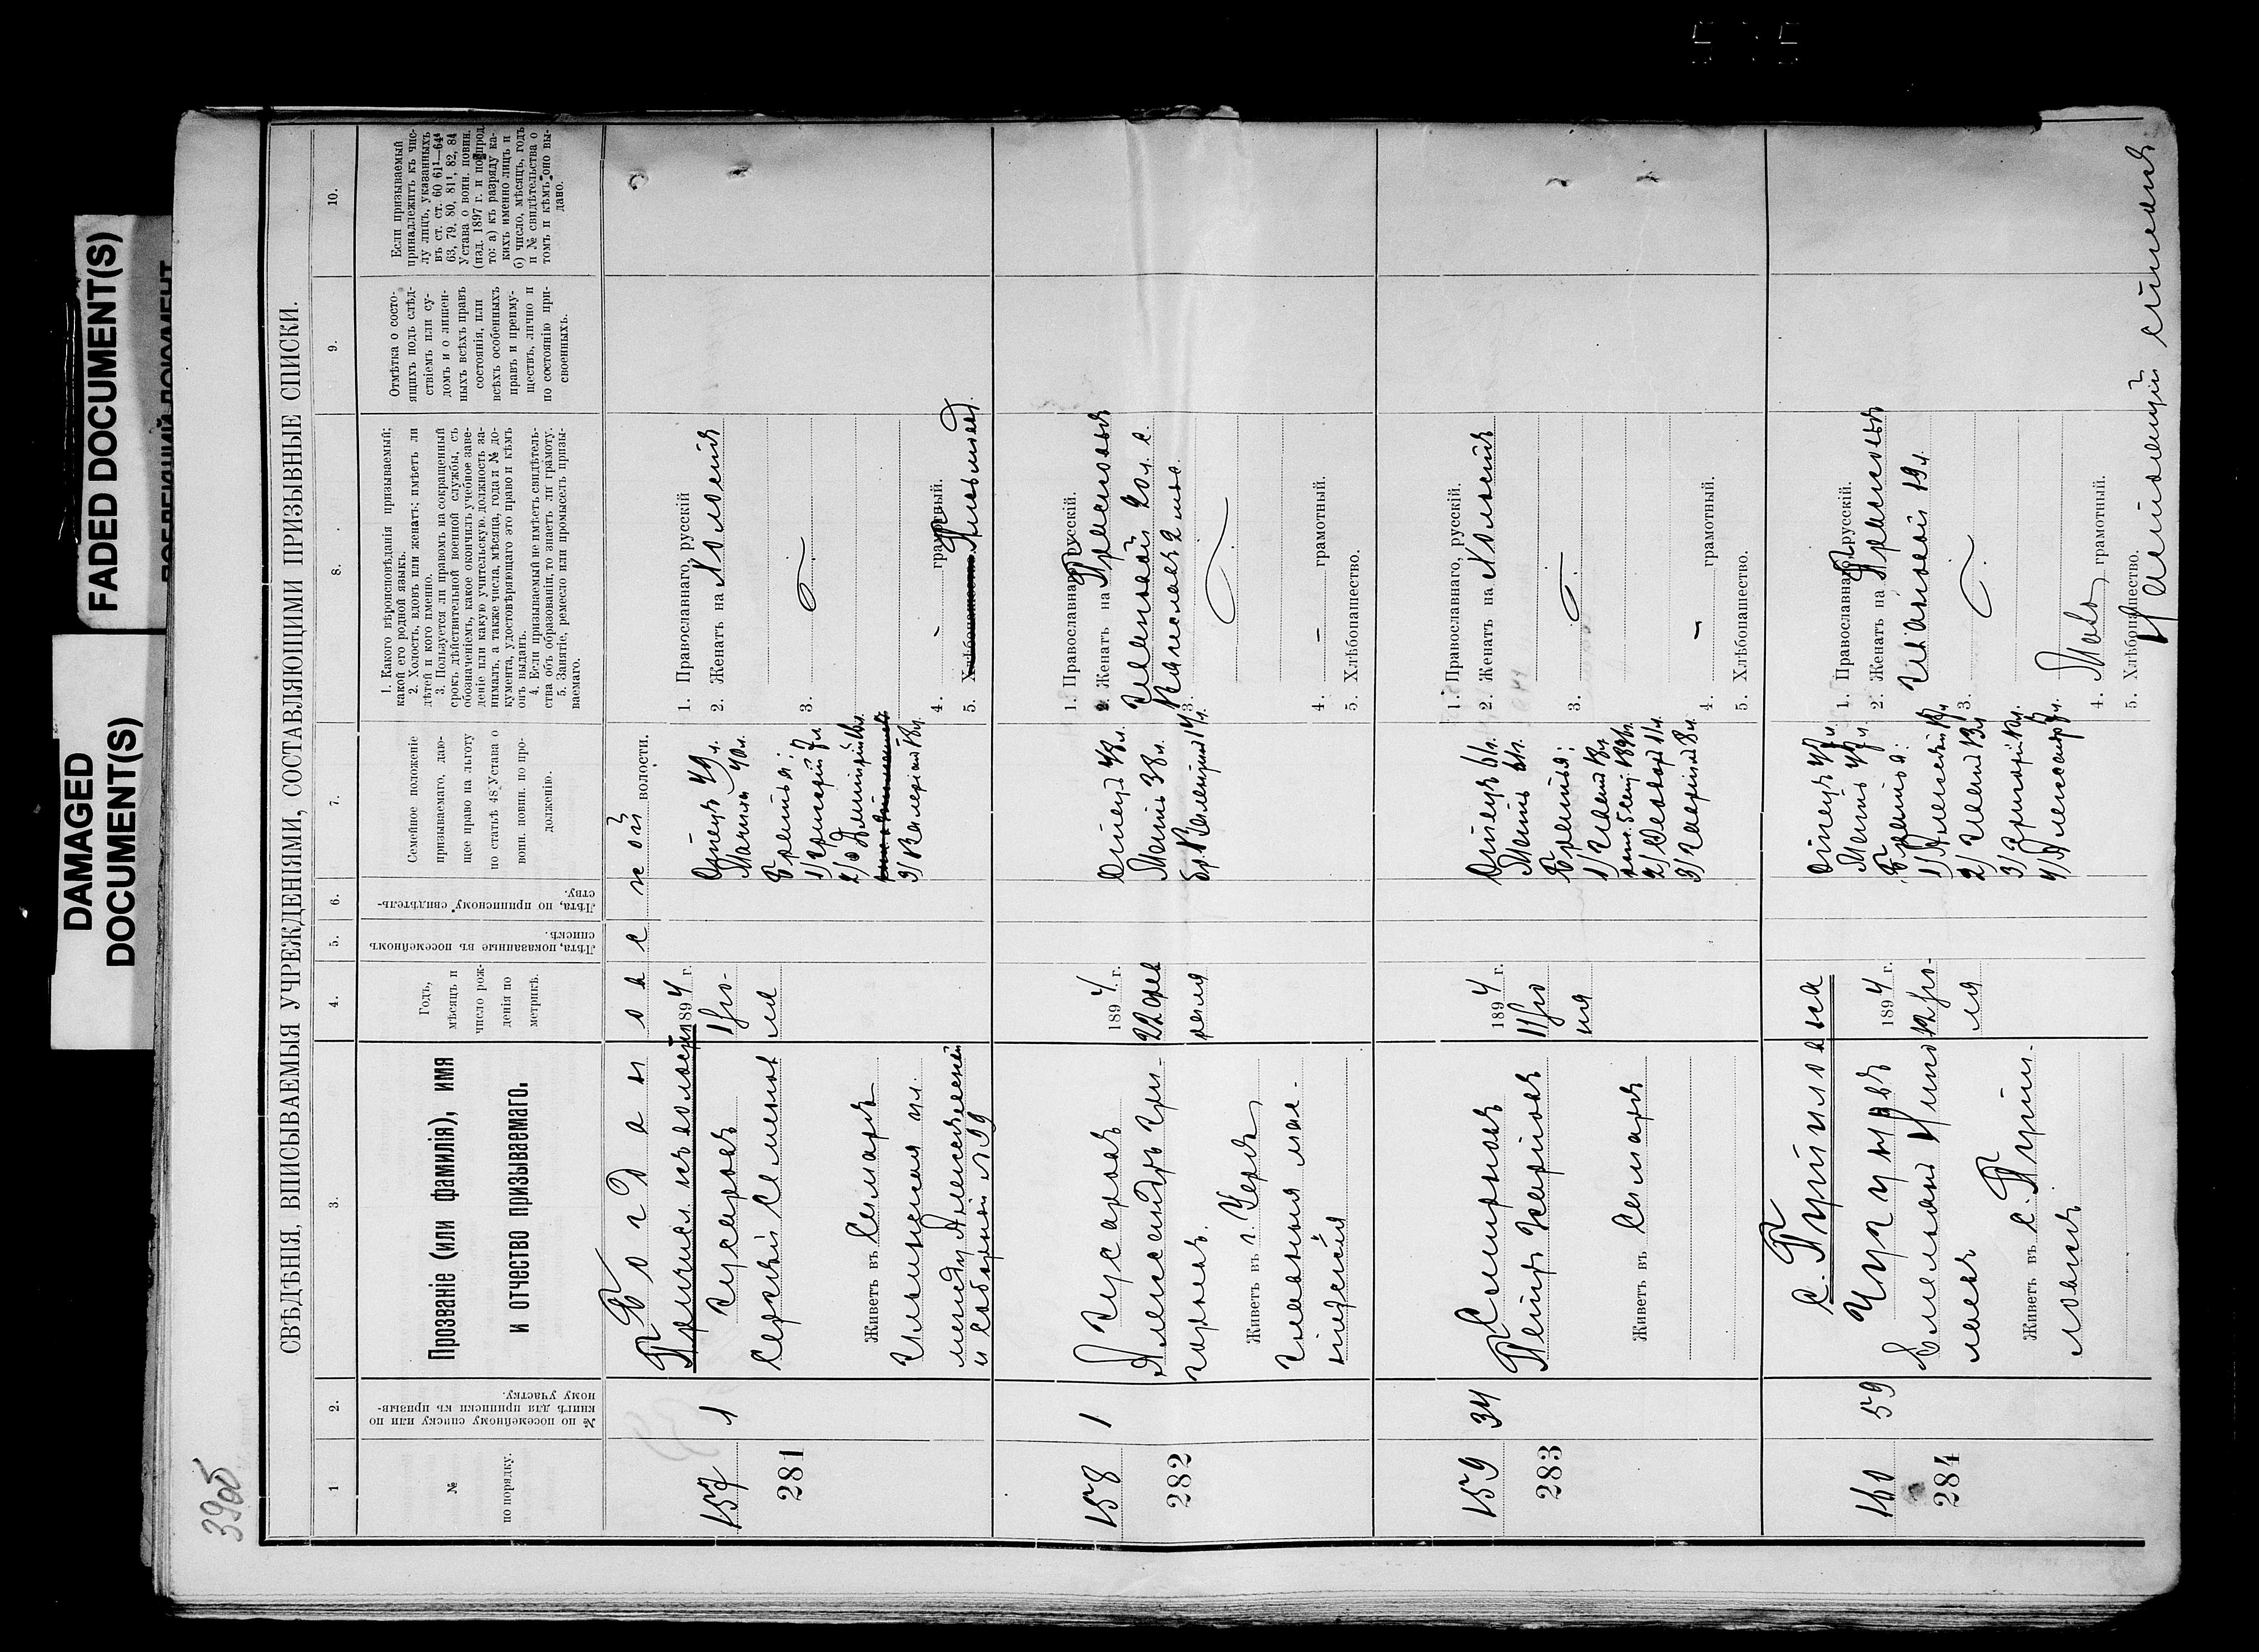 DAMAGED
DOCUMENT(S)
FADED DOCUMENT(S)
39об
СВѢДѢНІЯ, ВПИСЫВАЕМЫЯ УЧРЕЖДЕНІЯМИ, СОСТАВЛЯЮЩИМИ ПРИЗЫВНЫЕ СПИСКИ.
1
2.
3.
4.
5.
6.
7.
8.
9.
10.
№
по порядку.
№ по посемейному списку или по
книгѣ для приписки къ призыв-
ному участку.
Прозваніе (или фамилія), имя
и отчество призываемаго.
Годъ,
мѣсяцъ и
число рож-
денія по
метрикѣ.
Лѣта, показанные въ посемейномъ
спискѣ.
Лѣта, по приписному свидѣтель-
ству.
Семейное положеніе
призываемаго, даю-
щее право на льготу
по статьѣ 48 Устава о
воин. повин. по про-
долженію.
1. Какого вѣроисповѣданія призываемый;
какой его родной языкъ.
2. Холостъ, вдовъ или женатъ; имѣетъ ли
дѣтей и кого именно.
3. Пользуется ли правомъ на сокращенный
срокъ дѣйствительной военной службы, съ
обозначеніемъ, какое окончилъ учебное заве-
деніе или какую учительскую должность за-
нималъ, а также числа, мѣсяца, года и № до-
кумента, удостовѣряющаго это право и кѣмъ
онъ выданъ.
4. Если призываемый не имѣетъ свидѣтель-
ства объ образованіи, то знаетъ ли грамоту.
5. Занятіе, ремесло или промыселъ призы-
ваемаго.
Отмѣтка о состо-
ящихъ подъ слѣд-
ствіемъ или су-
домъ и о лишен-
ныхъ всѣхъ правъ
состоянія, или
всѣхъ особенныхъ
правъ и преиму-
ществъ, лично и
по состоянію при-
своенныхъ.
Если призываемый
принадлежитъ къ чис-
лу лицъ, указанныхъ
въ ст. ст. 60 61¹—64⁴
63, 79, 80, 81¹, 82, 84
Устава о воин. повин.
(изд. 1897 г. и по прод.
то: а) къ разряду ка-
кихъ именно лицъ и
б) число, мѣсяцъ, годъ
и № свидѣтельства о
томъ и кѣмъ оно вы-
дано.
Богдановской волости.
Причисл. къ волости
157
281
1
Гусаровъ
Сергѣй Семенов
Живетъ въ Самарѣ
Ильинская ул.
между Алексѣевской
и Соборной № 99
1894 г.
1 Ію-
ля
Отецъ 49 л.
Мачиха 40 л.
Братья:
1) Григорій 17 л
2) Дмитрій 16 л.
3) Валеріан 13 л.
1. Православнаго, русскій
2. Женатъ на Холостъ
3.
4. — грамотный.
5. Хлѣбопашество.
158
282
1
Гусаровъ
Александръ Гри-
горьев.
Живетъ въ г. Керки
Главная мас-
терская
1894 г.
22 фев
раля
Отецъ 48 л.
Мать 38 л.
бр. Валентинъ 14 л.
1. Православнаго, русскій.
2. Женатъ на Прасковья
Ивановой 20 л. с.
Вячеслав 2 мѣс.
3.
4. — грамотный.
5. Хлѣбопашество.
159
283
34
Смирновъ
Петръ Захаровъ
Живетъ въ Самарѣ
1894 г.
11 Ію
ня
Отецъ 61 г.
Мать 61 г.
Братья:
1) Иванъ 18 л
род. 5 Сен. 1896 г.
2) Ѳедоръ 11 л.
3) Георгій 8 л.
1. Православнаго, русскій.
2. Женатъ на Холостъ
3.
4. — грамотный.
5. Хлѣбопашество.
с. Путиловка
160
284
59
Чугуновъ
Емельян Нико-
лаевъ
Живетъ въ с. Пути-
ловкѣ
1894 г.
12 Ію-
ля
Отецъ 47 л.
Мать 47 л
Братья:
1) Алексѣй 17 л
2) Иванъ 13 л
3) Григорій 10 л.
4) Александръ 7 л.
1. Православнаго, русскій.
2. Женатъ на Прасковья
Ивановой 19 л.
3.
4. Мало грамотный.
5. Хлѣбопашество.